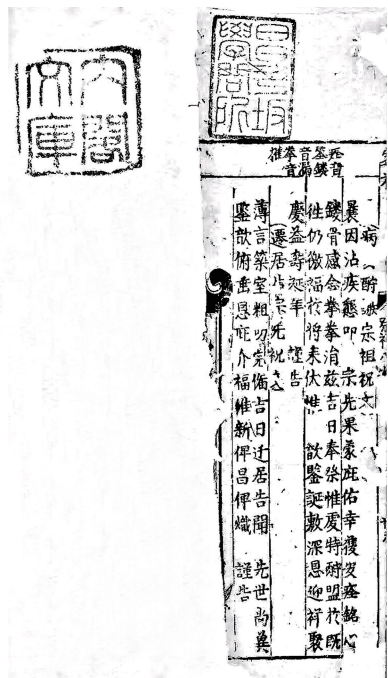 昌平坂
學問所
內閣
文庫
痊音
筌鏤
音漏
拳音
權
病酹宗祖祝文
曩因沾疾懇叩 宗先果蒙庇佑幸獲安痊銘心
鏤骨感念拳拳涓兹吉日奉祭惟虔特酹盟於既
徃仍徼福於將来伏惟 歆鑒誕敷深恩迎祥聚
慶益壽延年 謹告
遷居告宗先祝文
薄言築室粗叨完備吉日迁居告聞 先世尚冀
鑒歆俯垂恩庇介福惟新俾昌俾熾 謹告